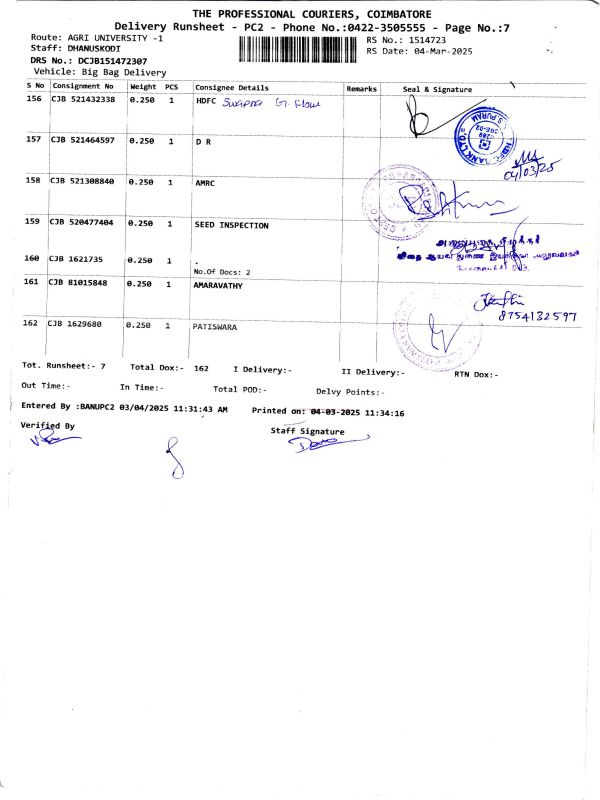 THE PROFESSIONAL COURIERS, COIMBATORE
Delivery Runsheet - PC2 - Phone No.:0422-3505555 - Page No.:7
Route: AGRI UNIVERSITY -1 RS No.: 1514723
Staff: DHANUSKODI RS Date: 04-Mar-2025
DRS No.: DCJB151472307
Vehicle: Big Bag Delivery
S No Consignment No Weight PCS Consignee Details Remarks Seal & Signature
156 CJB 521432338 0.250 1 HDFC Swapna
157 CJB 521464597 0.250 1 D R
04/03/25
158 CJB 521308840 0.250 1 AMRC
159 CJB 520477404 0.250 1 SEED INSPECTION
160 CJB 1621735 0.250 1 .
No.Of Docs: 2
161 CJB 81015848 0.250 1 AMARAVATHY
8754132597
162 CJB 1629680 0.250 1 PATISWARA
Tot. Runsheet:- 7 Total Dox:- 162 I Delivery:- II Delivery:- RTN Dox:-
Out Time:- In Time:- Total POD:- Delvy Points:-
Entered By :BANUPC2 03/04/2025 11:31:43 AM Printed on: 04-03-2025 11:34:16
Verified By Staff Signature